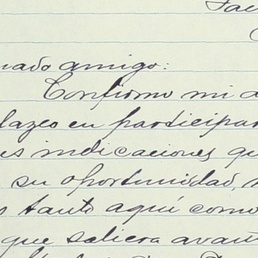 nado amigo:
Confirmo mi a
lazco en participar
es indicaciones qu
su oportunidad,
s tanto aquí como
que saliera avan